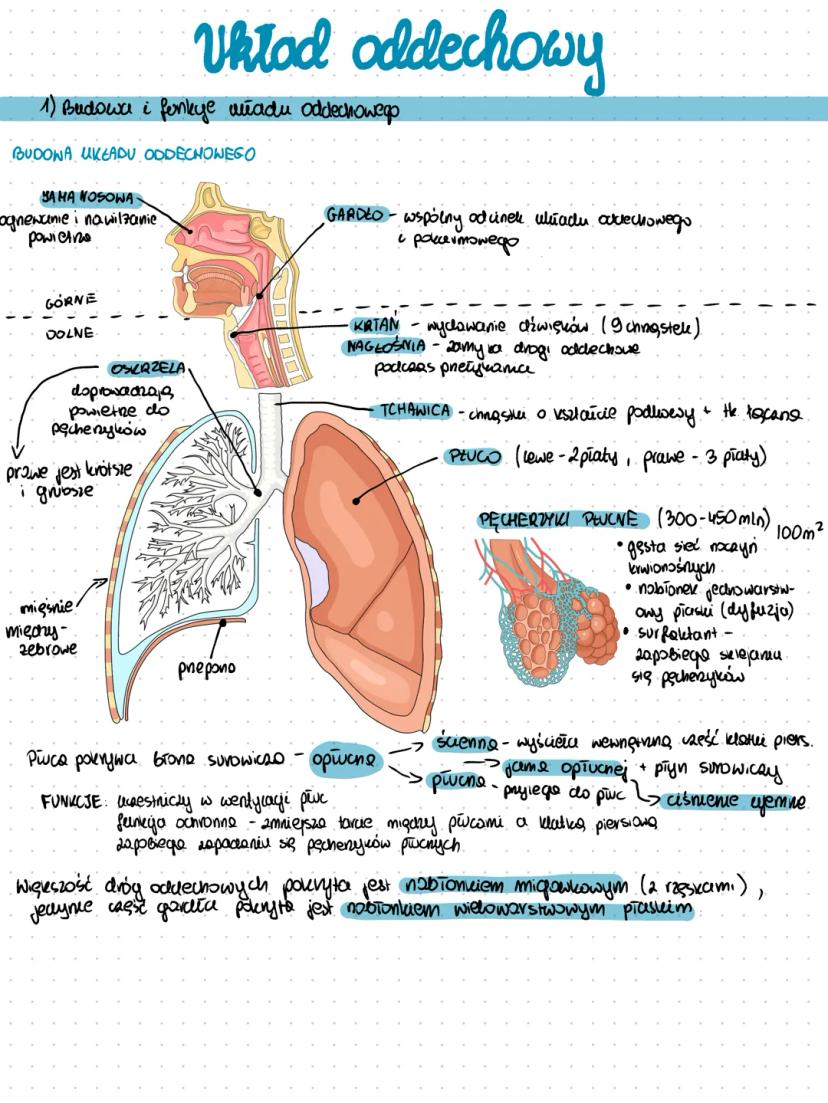 Układ oddechowy
1) Budowa i funkcje układu oddechowego
BUDOWA UKŁADU ODDECHOWEGO
JAMA NOSOWA
ogrzewanie i nawilżanie
powietrza
GARDŁO - wspólny odcinek układu oddechowego
i pokarmowego
GÓRNE
DOLNE
KRTAŃ - wydawanie dźwięków (9 chrząstek)
NAGŁOŚNIA - zamyka drogi oddechowe
podczas przełykania
OSKRZELA
doprowadzają
powietrze do
pęcherzyków
prawe jest krótsze
i grubsze
TCHAWICA - chrząstki o kształcie podkowy + tk. łączna
PŁUCO (lewe - 2 płaty, prawe - 3 płaty)
PĘCHERZYKI PŁUCNE (300-450 mln) 100m²
• gęsta sieć naczyń
krwionośnych
• nabłonek jednowarstw-
owy płaski (dyfuzja)
• surfaktant -
zapobiega sklejaniu
się pęcherzyków
mięśnie
między-
żebrowe
przepona
Płuca pokrywa błona surowicza - opłucna
→ ścienna - wyściela wewnętrzną część klatki piers.
→ jama opłucnej + płyn surowiczy
→ płucna - przylega do płuc
→ ciśnienie ujemne
FUNKCJE: uczestniczy w wentylacji płuc
funkcja ochronna - zmniejsza tarcie między płucami a klatką piersiową
zapobiega zapadaniu się pęcherzyków płucnych
Większość dróg oddechowych pokryta jest nabłonkiem migawkowym (z rzęskami),
jedynie część gardła pokryta jest nabłonkiem wielowarstwowym płaskim